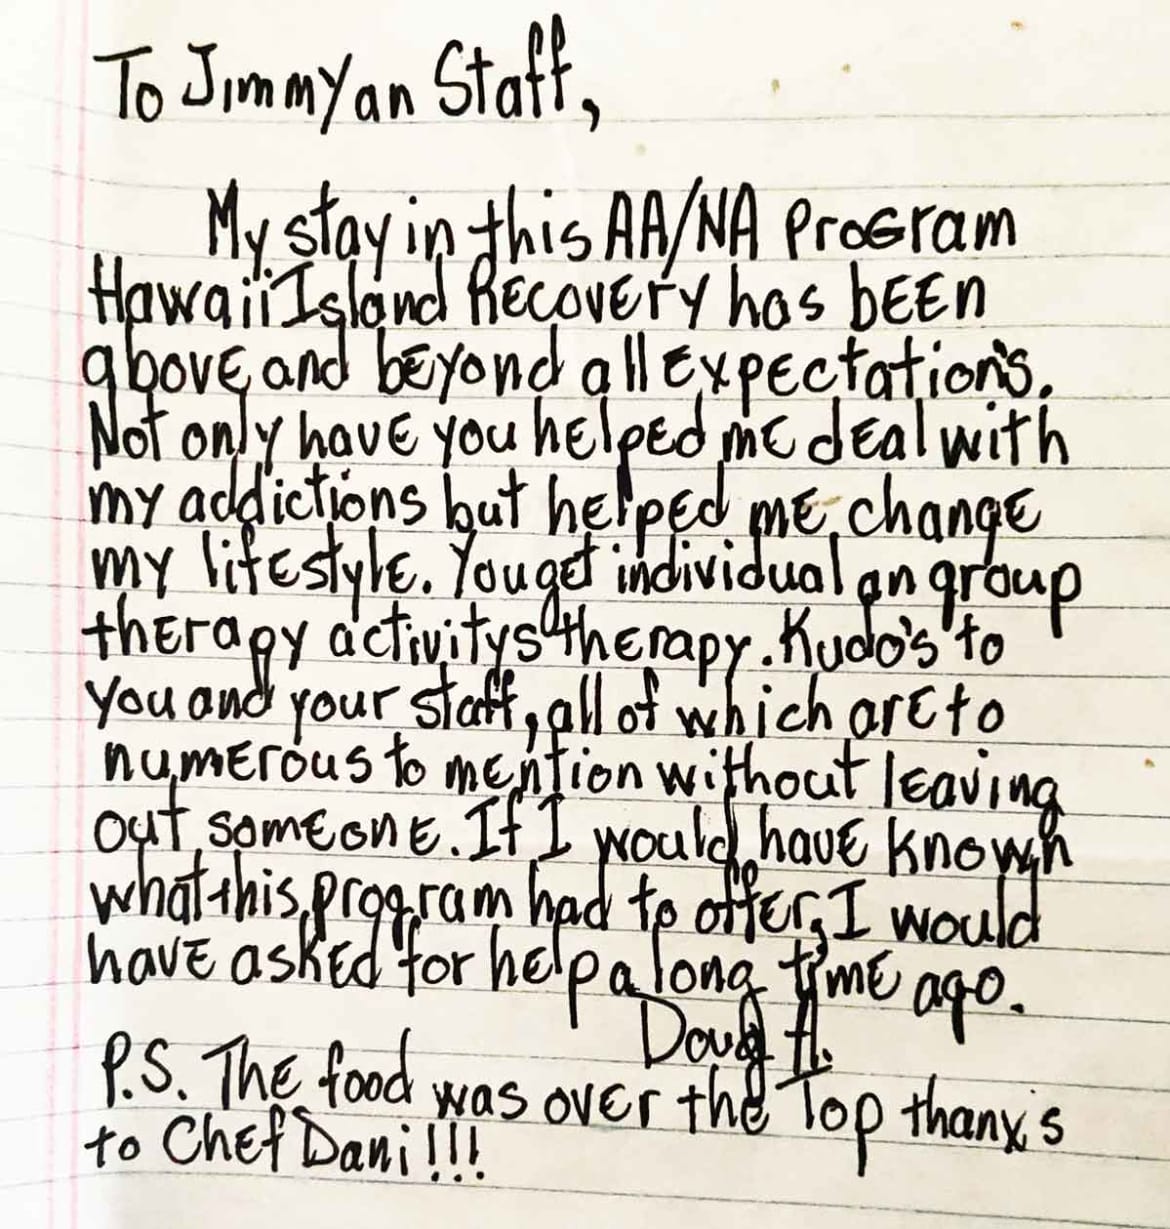 To Jimmy an Staff,
My stay in this AA/NA Program
Hawaii Island Recovery has been
above and beyond all expectation's.
Not only have you helped me deal with
my addictions but helped me change
my lifestyle. You get individual an group
therapy activitys therapy. Kudo's to
you and your staff, all of which are to
numerous to mention without leaving
out someone. If I would have known
what this program had to offer, I would
have asked for help a long time ago.
Doug H.
P.S. The food was over the Top thanx's
to Chef Dani!!!